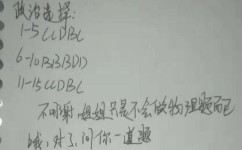 政治选择:
1-5CCDBC
6-10BBBDD
11-15CCDBC
不用谢,姐姐只是不会做物理题而已
哦,对了,问你一道题